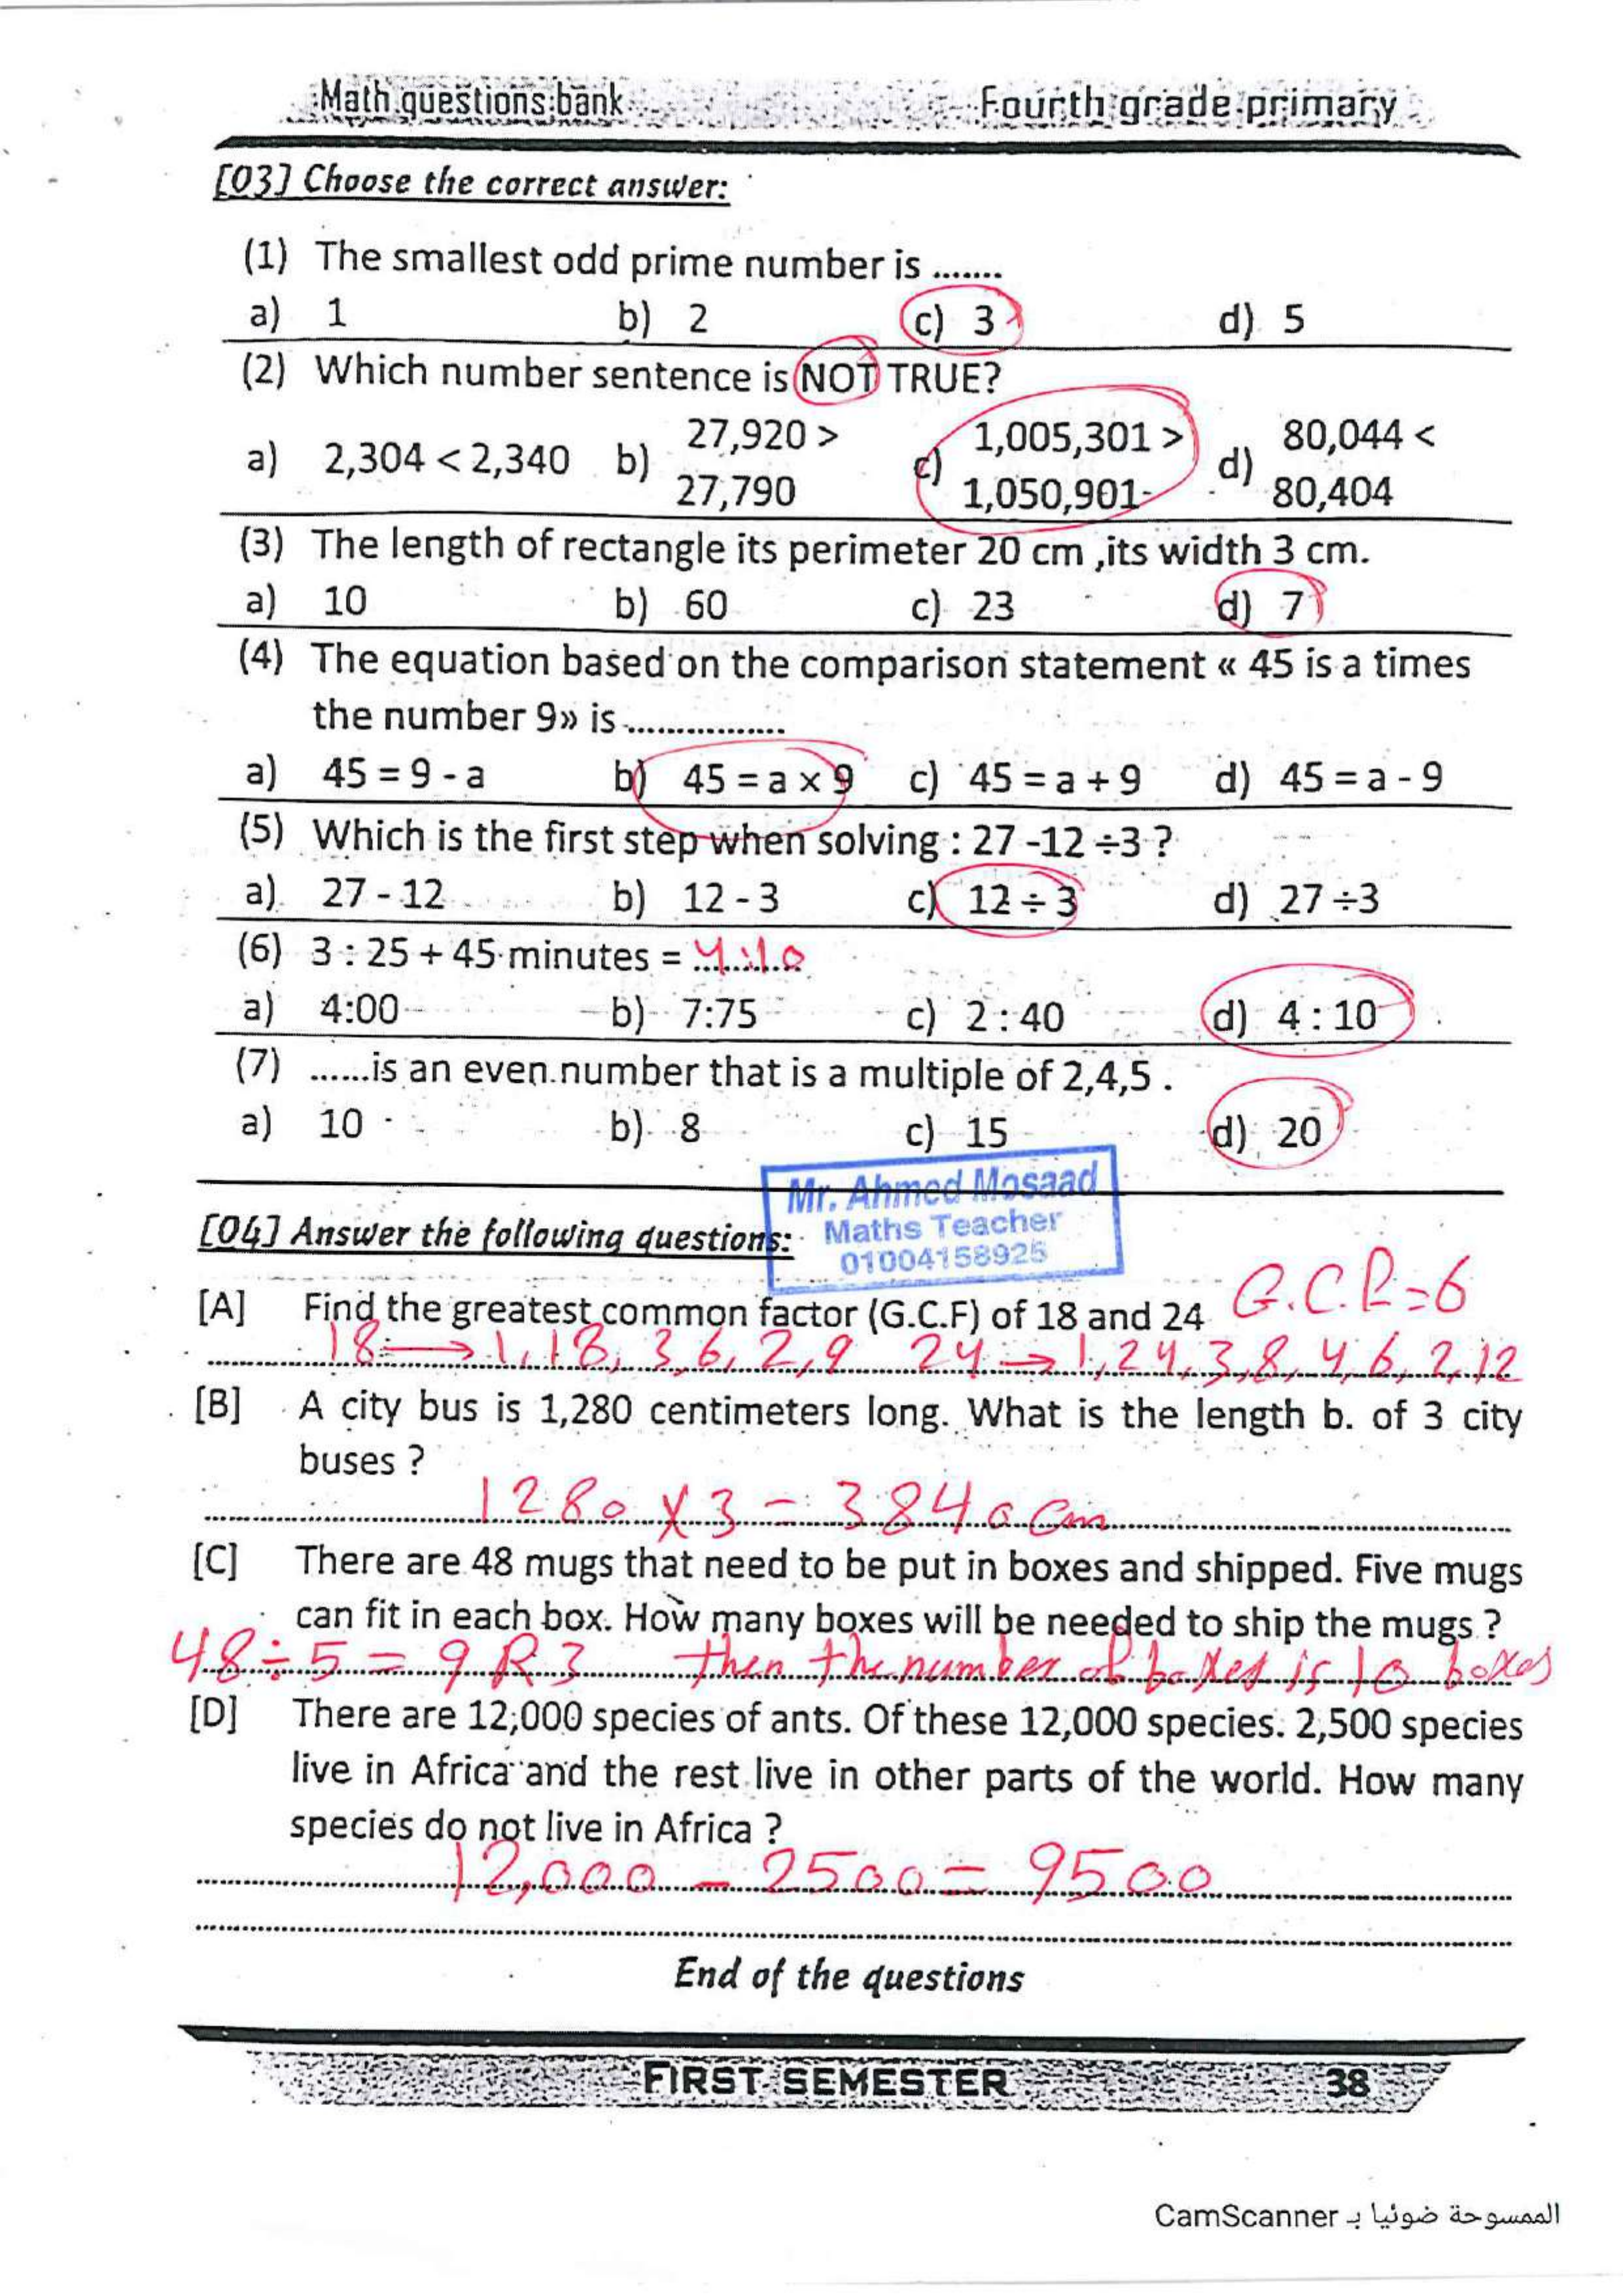 Math questions bank Fourth grade primary
[03] Choose the correct answer:
(1) The smallest odd prime number is .......
a) 1 b) 2 c) 3 d) 5
(2) Which number sentence is NOT TRUE?
a) 2,304 < 2,340 b) 27,920 > 27,790 c) 1,005,301 > 1,050,901 d) 80,044 < 80,404
(3) The length of rectangle its perimeter 20 cm ,its width 3 cm.
a) 10 b) 60 c) 23 d) 7
(4) The equation based on the comparison statement « 45 is a times
the number 9» is ................
a) 45 = 9 - a b) 45 = a × 9 c) 45 = a + 9 d) 45 = a - 9
(5) Which is the first step when solving : 27 -12 ÷3 ?
a) 27 - 12 b) 12 - 3 c) 12 ÷ 3 d) 27 ÷3
(6) 3 : 25 + 45 minutes = 4:10
a) 4:00 b) 7:75 c) 2 : 40 d) 4 : 10
(7) ......is an even number that is a multiple of 2,4,5 .
a) 10 b) 8 c) 15 d) 20
Mr. Ahmed Mosaad
Maths Teacher
01004158925
[04] Answer the following questions:
[A] Find the greatest common factor (G.C.F) of 18 and 24 G.C.F=6
18 → 1, 18, 3, 6, 2, 9 24 → 1, 24, 3, 8, 4, 6, 2, 12
[B] A city bus is 1,280 centimeters long. What is the length b. of 3 city
buses ?
1280 × 3 = 3840 cm
[C] There are 48 mugs that need to be put in boxes and shipped. Five mugs
can fit in each box. How many boxes will be needed to ship the mugs ?
48 ÷ 5 = 9 R 3 then the number of boxes is 10 boxes
[D] There are 12,000 species of ants. Of these 12,000 species. 2,500 species
live in Africa and the rest live in other parts of the world. How many
species do not live in Africa ?
12,000 - 2500 = 9500
End of the questions
FIRST SEMESTER 38
الممسوحة ضوئيا بـ CamScanner